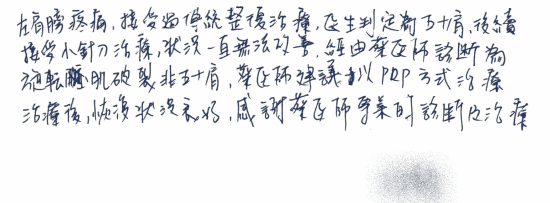 左肩膀疼痛,接受過傳統整復治療,醫生判定為五十肩,後續
接受小針刀治療,狀況一直無法改善,經由蔡醫師診斷為
旋轉肌破裂非五十肩,蔡醫師建議以PRP方式治療
治療後,恢復狀況良好,感謝蔡醫師專業的診斷及治療